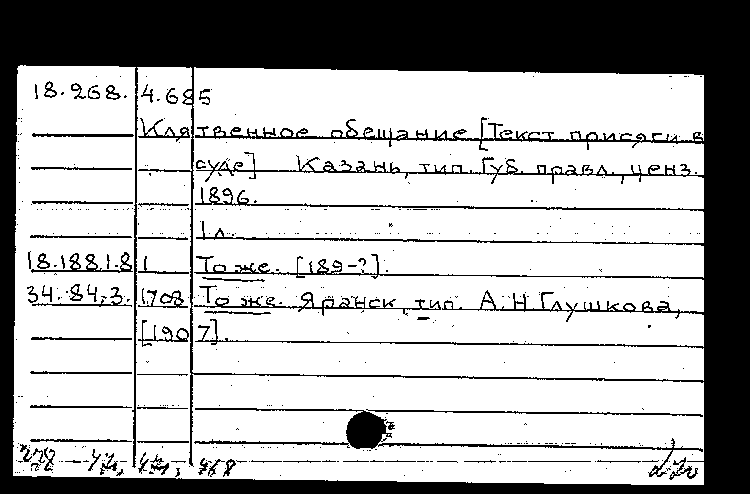 18.268. 4.685
Клятвенное обещание [Текст присяги в
суде] Казань, тип. Губ. правл., ценз.
1896.
1 л.
18.188.1.81 То же. [189-?].
34.84.3.1708 То же. Яранск, тип. А.Н. Глушкова,
[1907].